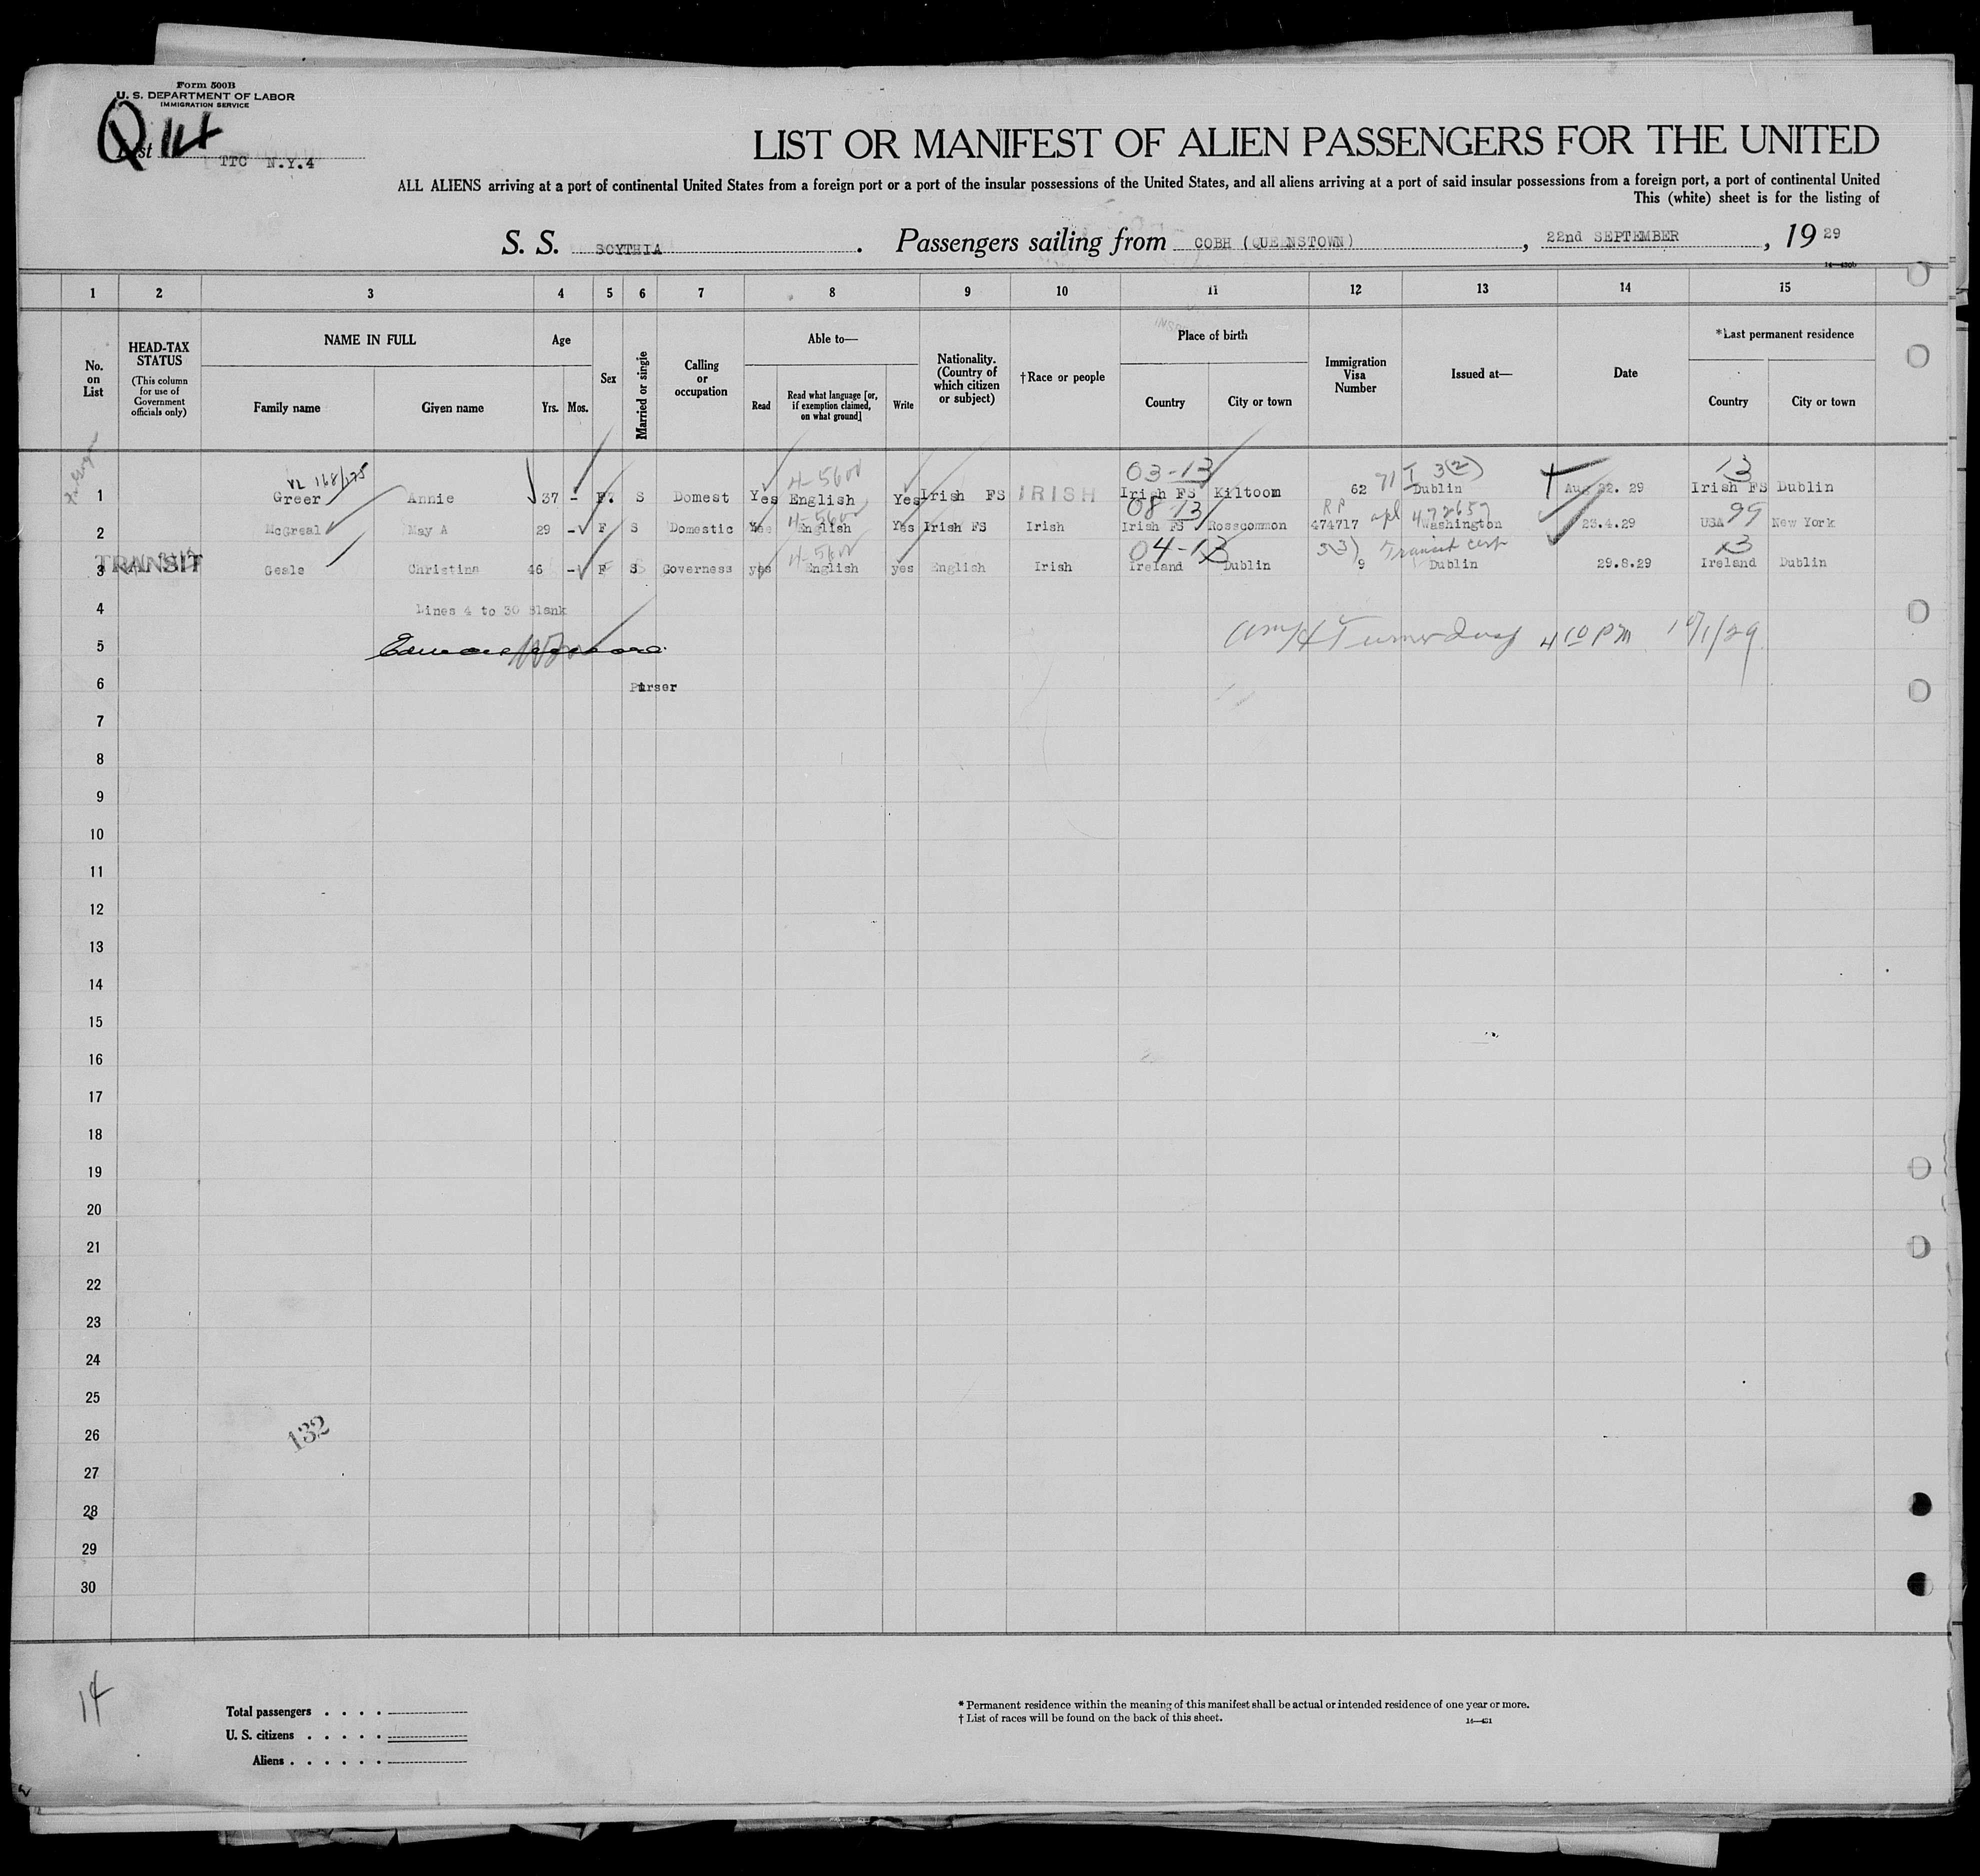 Form 500B
U. S. DEPARTMENT OF LABOR
IMMIGRATION SERVICE
Q 14
List
TTC N.Y.4
LIST OR MANIFEST OF ALIEN PASSENGERS FOR THE UNITED
ALL ALIENS arriving at a port of continental United States from a foreign port or a port of the insular possessions of the United States, and all aliens arriving at a port of said insular possessions from a foreign port, a port of continental United
This (white) sheet is for the listing of
S. S. SCYTHIA . Passengers sailing from COBH (QUEENSTOWN) , 22nd SEPTEMBER , 19 29
1 2 3 4 5 6 7 8 9 10 11 12 13 14 15
No. on List
HEAD-TAX STATUS
(This column for use of Government officials only)
NAME IN FULL
Family name Given name
Age
Yrs. Mos.
Sex
Married or single
Calling or occupation
Able to—
Read Read what language [or, if exemption claimed, on what ground] Write
Nationality. (Country of which citizen or subject)
†Race or people
Place of birth
Country City or town
Immigration Visa Number
Issued at—
Date
*Last permanent residence
Country City or town
VL 168/175 4-5600 03-13 71 I 3(2) 13
1 Greer Annie 37 - F. S Domest Yes English Yes Irish FS IRISH Irish FS Kiltoom 62 Dublin Aug 22. 29 Irish FS Dublin
4-5600 08 13 RP apl 472657 99
2 McGreal May A 29 - F S Domestic Yes English Yes Irish FS Irish Irish FS Rosscommon 474717 Washington 23.4.29 USA New York
TRANSIT 4-5600 04-13 3(3) Transit cert 13
3 Geale Christina 46 - F S Governess yes English yes English Irish Ireland Dublin 9 Dublin 29.8.29 Ireland Dublin
4 Lines 4 to 30 Blank
5 4 10 PM 10/1/29
6 Purser
7
8
9
10
11
12
13
14
15
16
17
18
19
20
21
22
23
24
25
26
132
27
28
29
30
14
Total passengers . . . .
U. S. citizens . . . . .
Aliens . . . . . .
* Permanent residence within the meaning of this manifest shall be actual or intended residence of one year or more.
† List of races will be found on the back of this sheet.